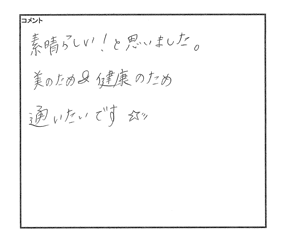 コメント
素晴らしい！と思いました。
美のため&健康のため
通いたいです☆ッ